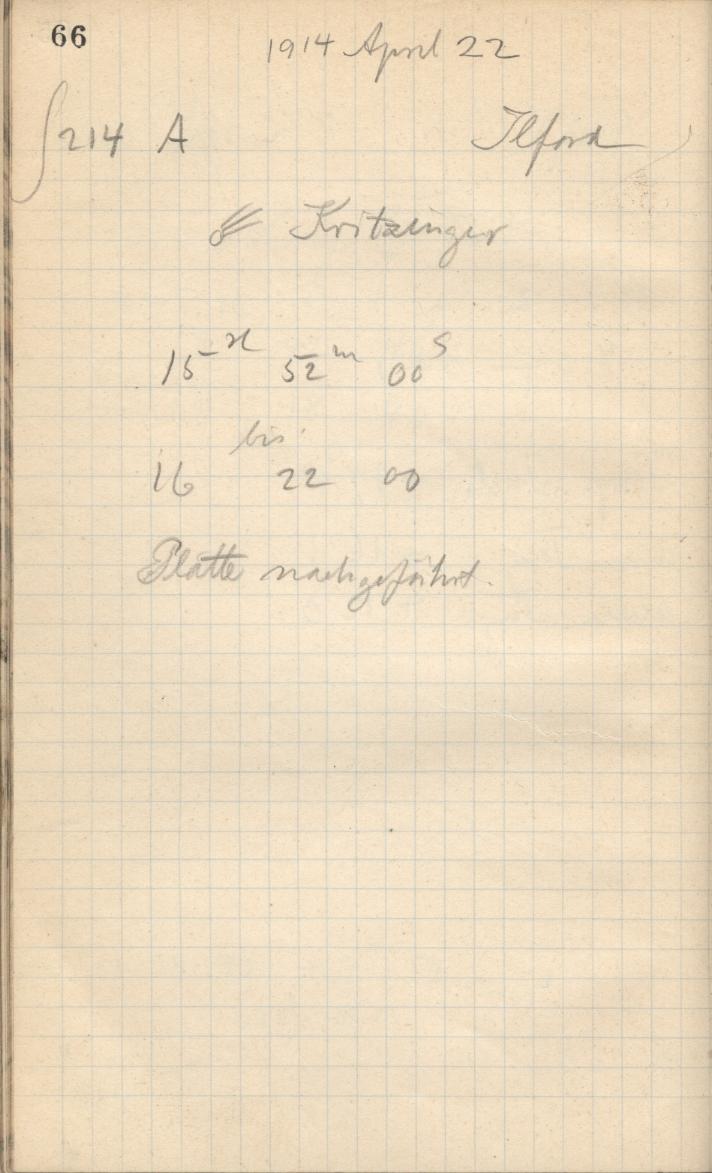 66
1914 April 22
214 A Ilford
☄ Kritzinger
15h 52m 00s
bis
16 22 00
Platte nachgeführt.